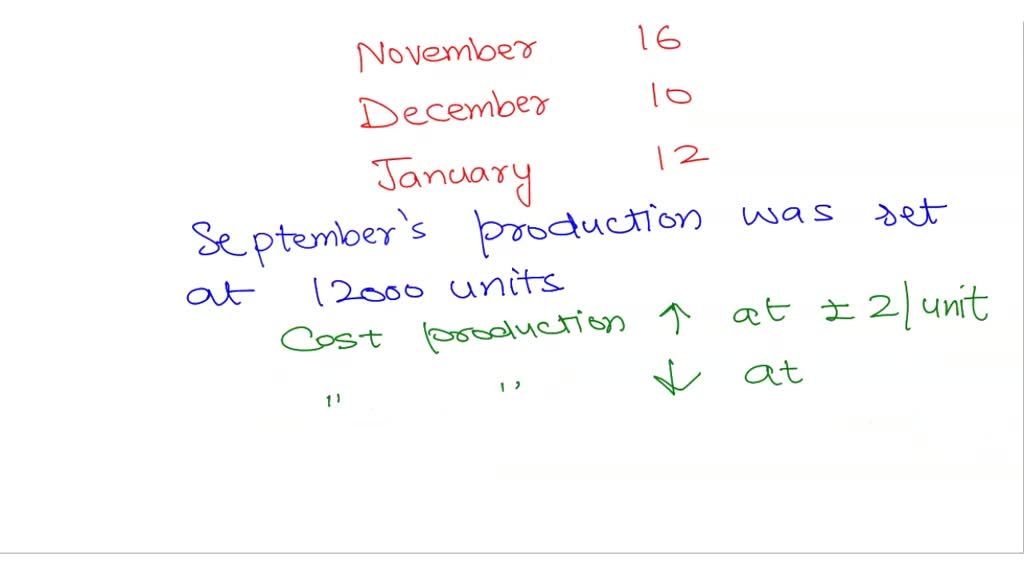 November 16
December 10
January 12
September's production was set
at 12000 units
Cost production ↑ at ± 2/unit
" " ↓ at